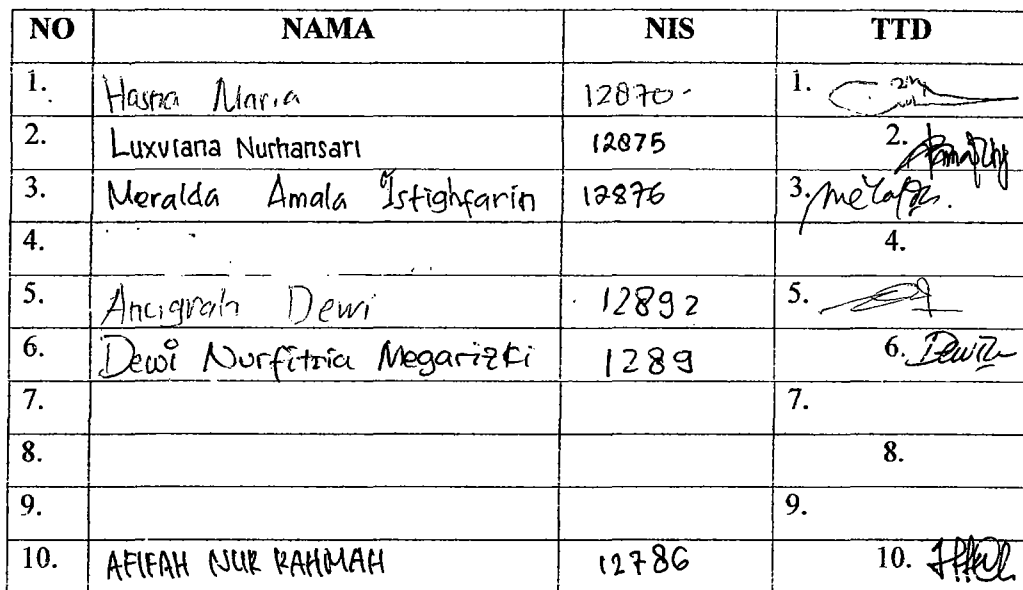 NO NAMA NIS TTD
1. Hasna Maria 12870 1.
2. Luxviana Nurhansari 12875 2.
3. Meralda Amala Istighfarin 12876 3.
4. 4.
5. Anugrah Dewi 12892 5.
6. Dewi Nurfitria Megarizki 1289 6.
7. 7.
8. 8.
9. 9.
10. AFIFAH NUR RAHMAH 12786 10.